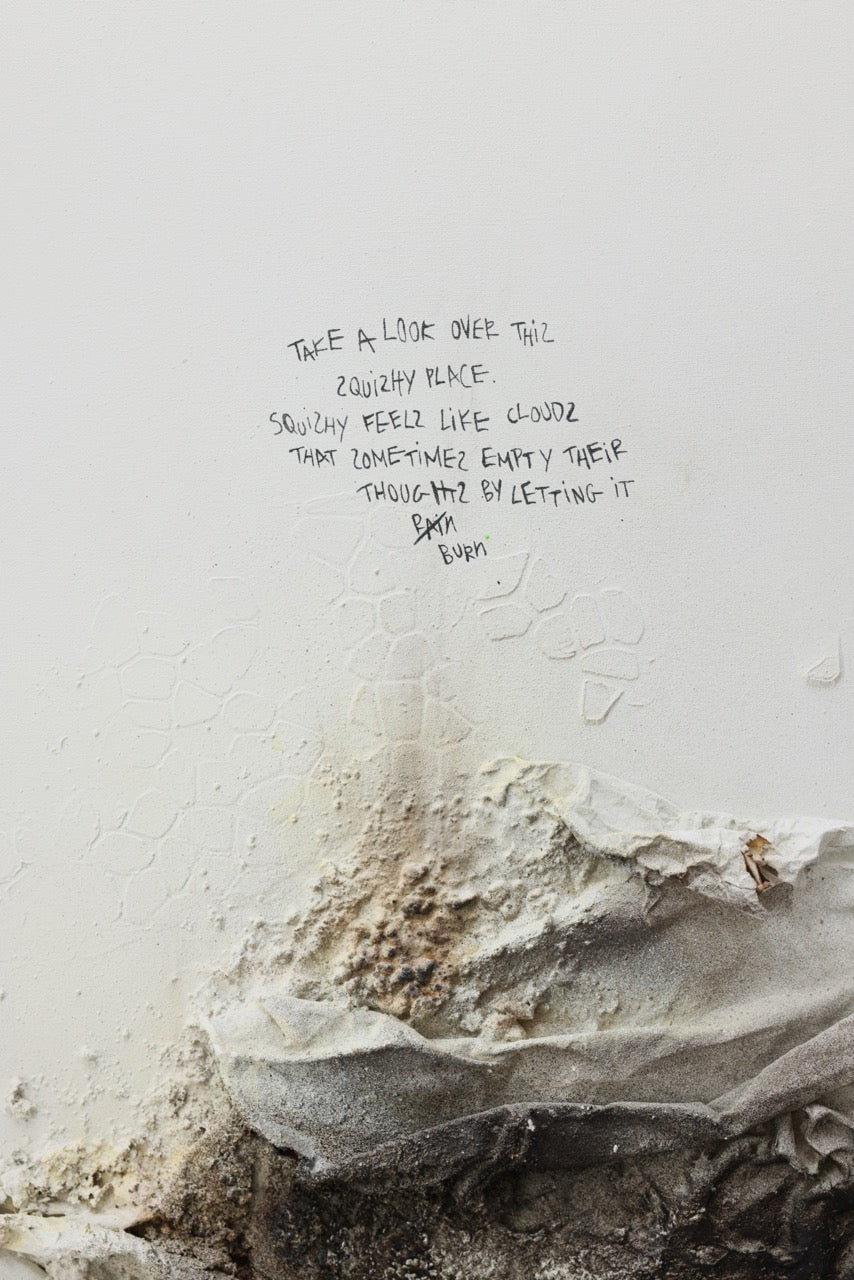 TAKE A LOOK OVER THiS
SQUiSHY PLACE.
SQUiSHY FEELS LiKE CLOUDS
THAT SOMETiMES EMPTY THEiR
THOUGHTS BY LETTiNG iT
RAiN
BURN